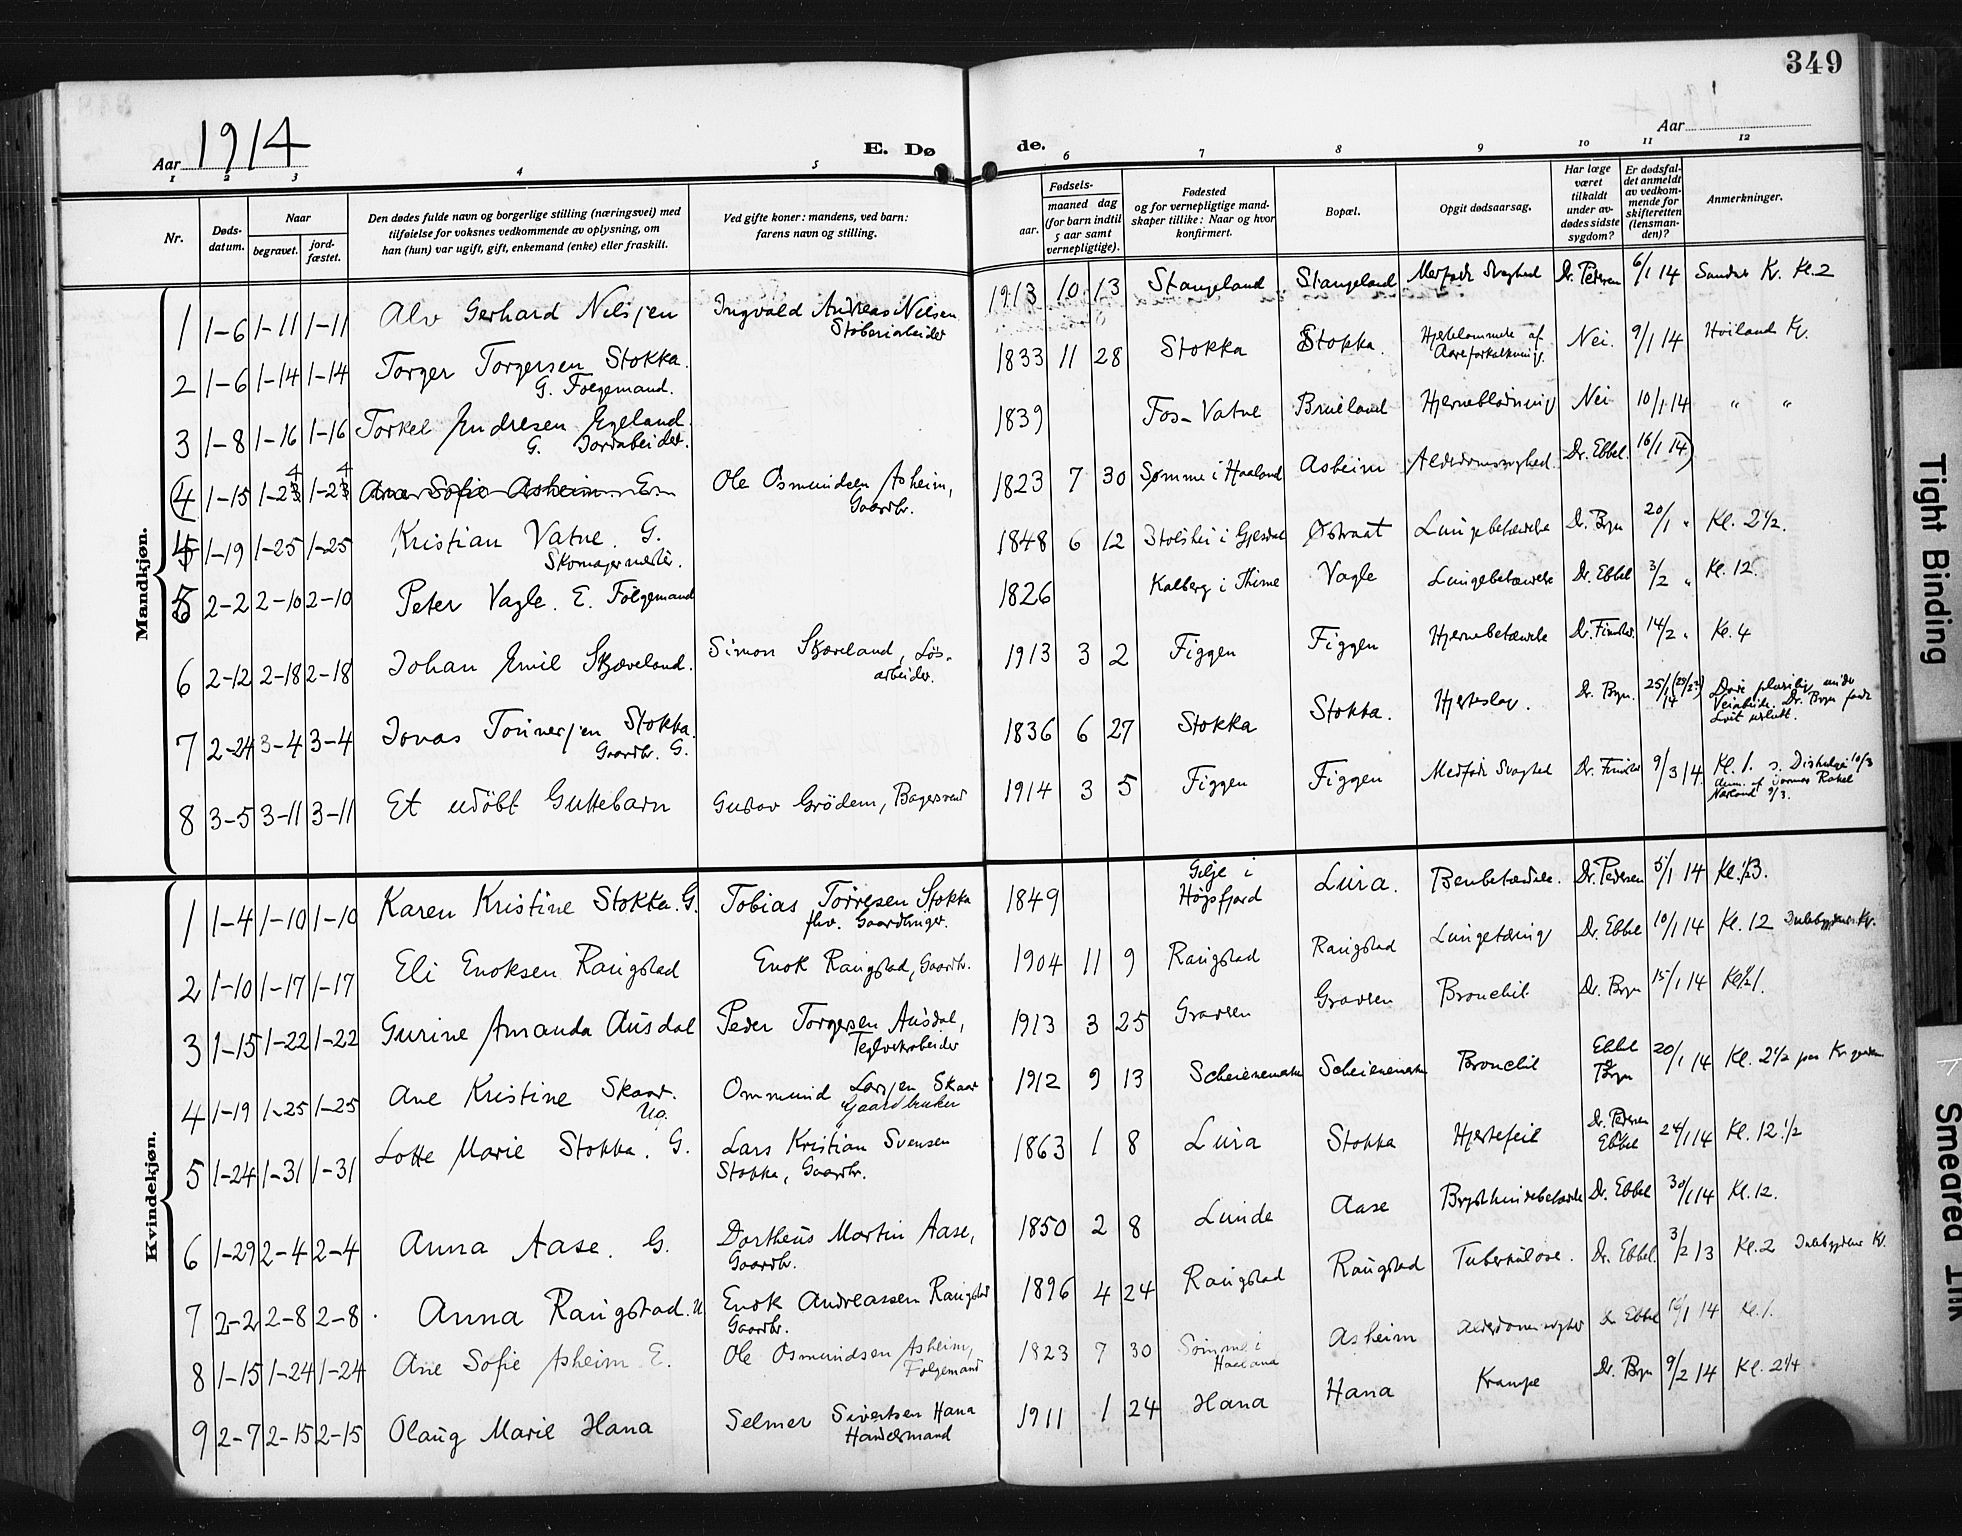 349
Aar 1914
E. Dø
de.
Aar
1 2 3 4 5 6 7 8 9 10 11 12
Nr.
Døds-
datum.
Naar
begravet.
jord-
fæstet.
Den dødes fulde navn og borgerlige stilling (næringsvei) med
tilføielse for voksnes vedkommende av oplysning, om
han (hun) var ugift, gift, enkemand (enke) eller fraskilt.
Ved gifte koner: mandens, ved barn:
farens navn og stilling.
Fødsels-
aar.
maaned dag
(for barn indtil
5 aar samt
vernepligtige).
Fødested
og for vernepligtige mand-
skaper tillike: Naar og hvor
konfirmert.
Bopæl.
Opgit dødsaarsag.
Har læge
været
tilkaldt
under av-
dødes sidste
sygdom?
Er dødsfal-
det anmeldt
av vedkom-
mende for
skifteretten
(lensman-
den)?
Anmerkninger.
Mandkjøn.
1 1-6 1-11 1-11 Alv Gerhard Nilsen Ingvald Andreas Nilsen 1913 10 13 Stangeland Stangeland Medfødt Svaghed Dr. Pedersen 6/1 14 Sandnes K. Kl. 2
Støberiarbeider
2 1-6 1-14 1-14 Torger Torgersen Stokka. 1833 11 28 Stokka Stokka. Hjertelammelse af Nei. 9/1 14 Hoiland K.
G. Følgemand. Aareforkalkning.
3 1-8 1-16 1-16 Torkel Endresen Egeland. 1839 Fos-Vatne Brueland Hjerneblødning Nei 10/1 14 " "
G. Jordarbeider.
(4 1-15 1-24 1-24 Ane Sofie Asheim E. Ole Osmundsen Asheim, 1823 7 30 Sømme i Haaland Asheim Alderdomssvaghed. Dr. Ebbel. 16/1 14)
Gaardbr.
4 1-19 1-25 1-25 Kristian Vatne. G. 1848 6 12 Stolshei i Gjesdal Østraat Lungebetændelse Dr. Bryn 20/1 " Kl. 2 1/2.
Skomagermester.
5 2-2 2-10 2-10 Peter Vagle. E. Følgemand 1826 Kalberg i Thime Vagle Lungebetændelse Dr. Ebbel 3/2 " Kl. 12.
6 2-12 2-18 2-18 Johan Emil Skjæveland. Simon Skjæveland, Løs- 1913 3 2 Figgen Figgen Hjernebetændelse 14/2 " Kl. 4
arbeider.
7 2-24 3-4 3-4 Jonas Tønnesen Stokka. 1836 6 27 Stokka Stokka. Hjerteslag. Dr. Bryn.
Gaardbr. G.
8 3-5 3-11 3-11 Et udøbt Guttebarn Gustav Grödem, Bagersvend 1914 3 5 Figgen Figgen Medfødt Svaghed 9/3 14. Kl. 1.
Kvindekjøn.
1 1-4 1-10 1-10 Karen Kristine Stokka. G. Tobias Tørresen Stokka 1849 Gilje i Lura. Benbetændelse. Dr. Pedersen 5/1 14 Kl. 1/2 3.
fhv. Gaardbruger. Høgsfjord
2 1-10 1-17 1-17 Eli Enoksen Raugstad Enok Raugstad, Gaardbr. 1904 11 9 Raugstad Raugstad Lungetæring Dr. Ebbel 10/1 14 Kl. 12
3 1-15 1-22 1-22 Gurine Amanda Ausdal Peder Torgersen Ausdal, 1913 3 25 Gravren Gravren Bronchit Dr. Bryn 15/1 14 Kl. 1/2 1.
Teglverksarbeider
4 1-19 1-25 1-25 Ane Kristine Skaar. Ommund Larsen Skaar 1912 9 13 Bronchit Ebbel 20/1 14 Kl. 2 1/2
Ug. Gaardbruker Bryn
5 1-24 1-31 1-31 Lotte Marie Stokka. G. Lars Kristian Svensen 1863 1 8 Lura Stokka Hjertefeil Dr. Pedersen 24/1 14 Kl. 12 1/2
Stokka, Gaardbr. Ebbel
6 1-29 2-4 2-4 Anna Aase. G. Dortheus Martin Aase, 1850 2 8 Lunde Aase Brysthindebetændelse Dr. Ebbel 30/1 14 Kl. 12.
Gaardbr.
7 2-2 2-8 2-8 Anna Raugstad. U Enok Andreassen Raugstad 1896 4 24 Raugstad Raugstad Tuberkulose. Dr. Ebbel. 3/2 13 Kl. 2
Gaardbr.
8 1-15 1-24 1-24 Ane Sofie Asheim E. Ole Osmundsen Asheim, 1823 7 30 Sømme i Asheim Alderdomssvaghed Dr Ebbel 16/1 14 Kl. 1.
Følgemand Haaland
9 2-7 2-15 2-15 Olaug Marie Hana Selmer Sivertsen Hana 1911 1 24 Hana Hana Krampe Dr. Bryn 9/2 14 Kl. 2 1/4
Handelsmand
Tight Binding
Smeared Ink